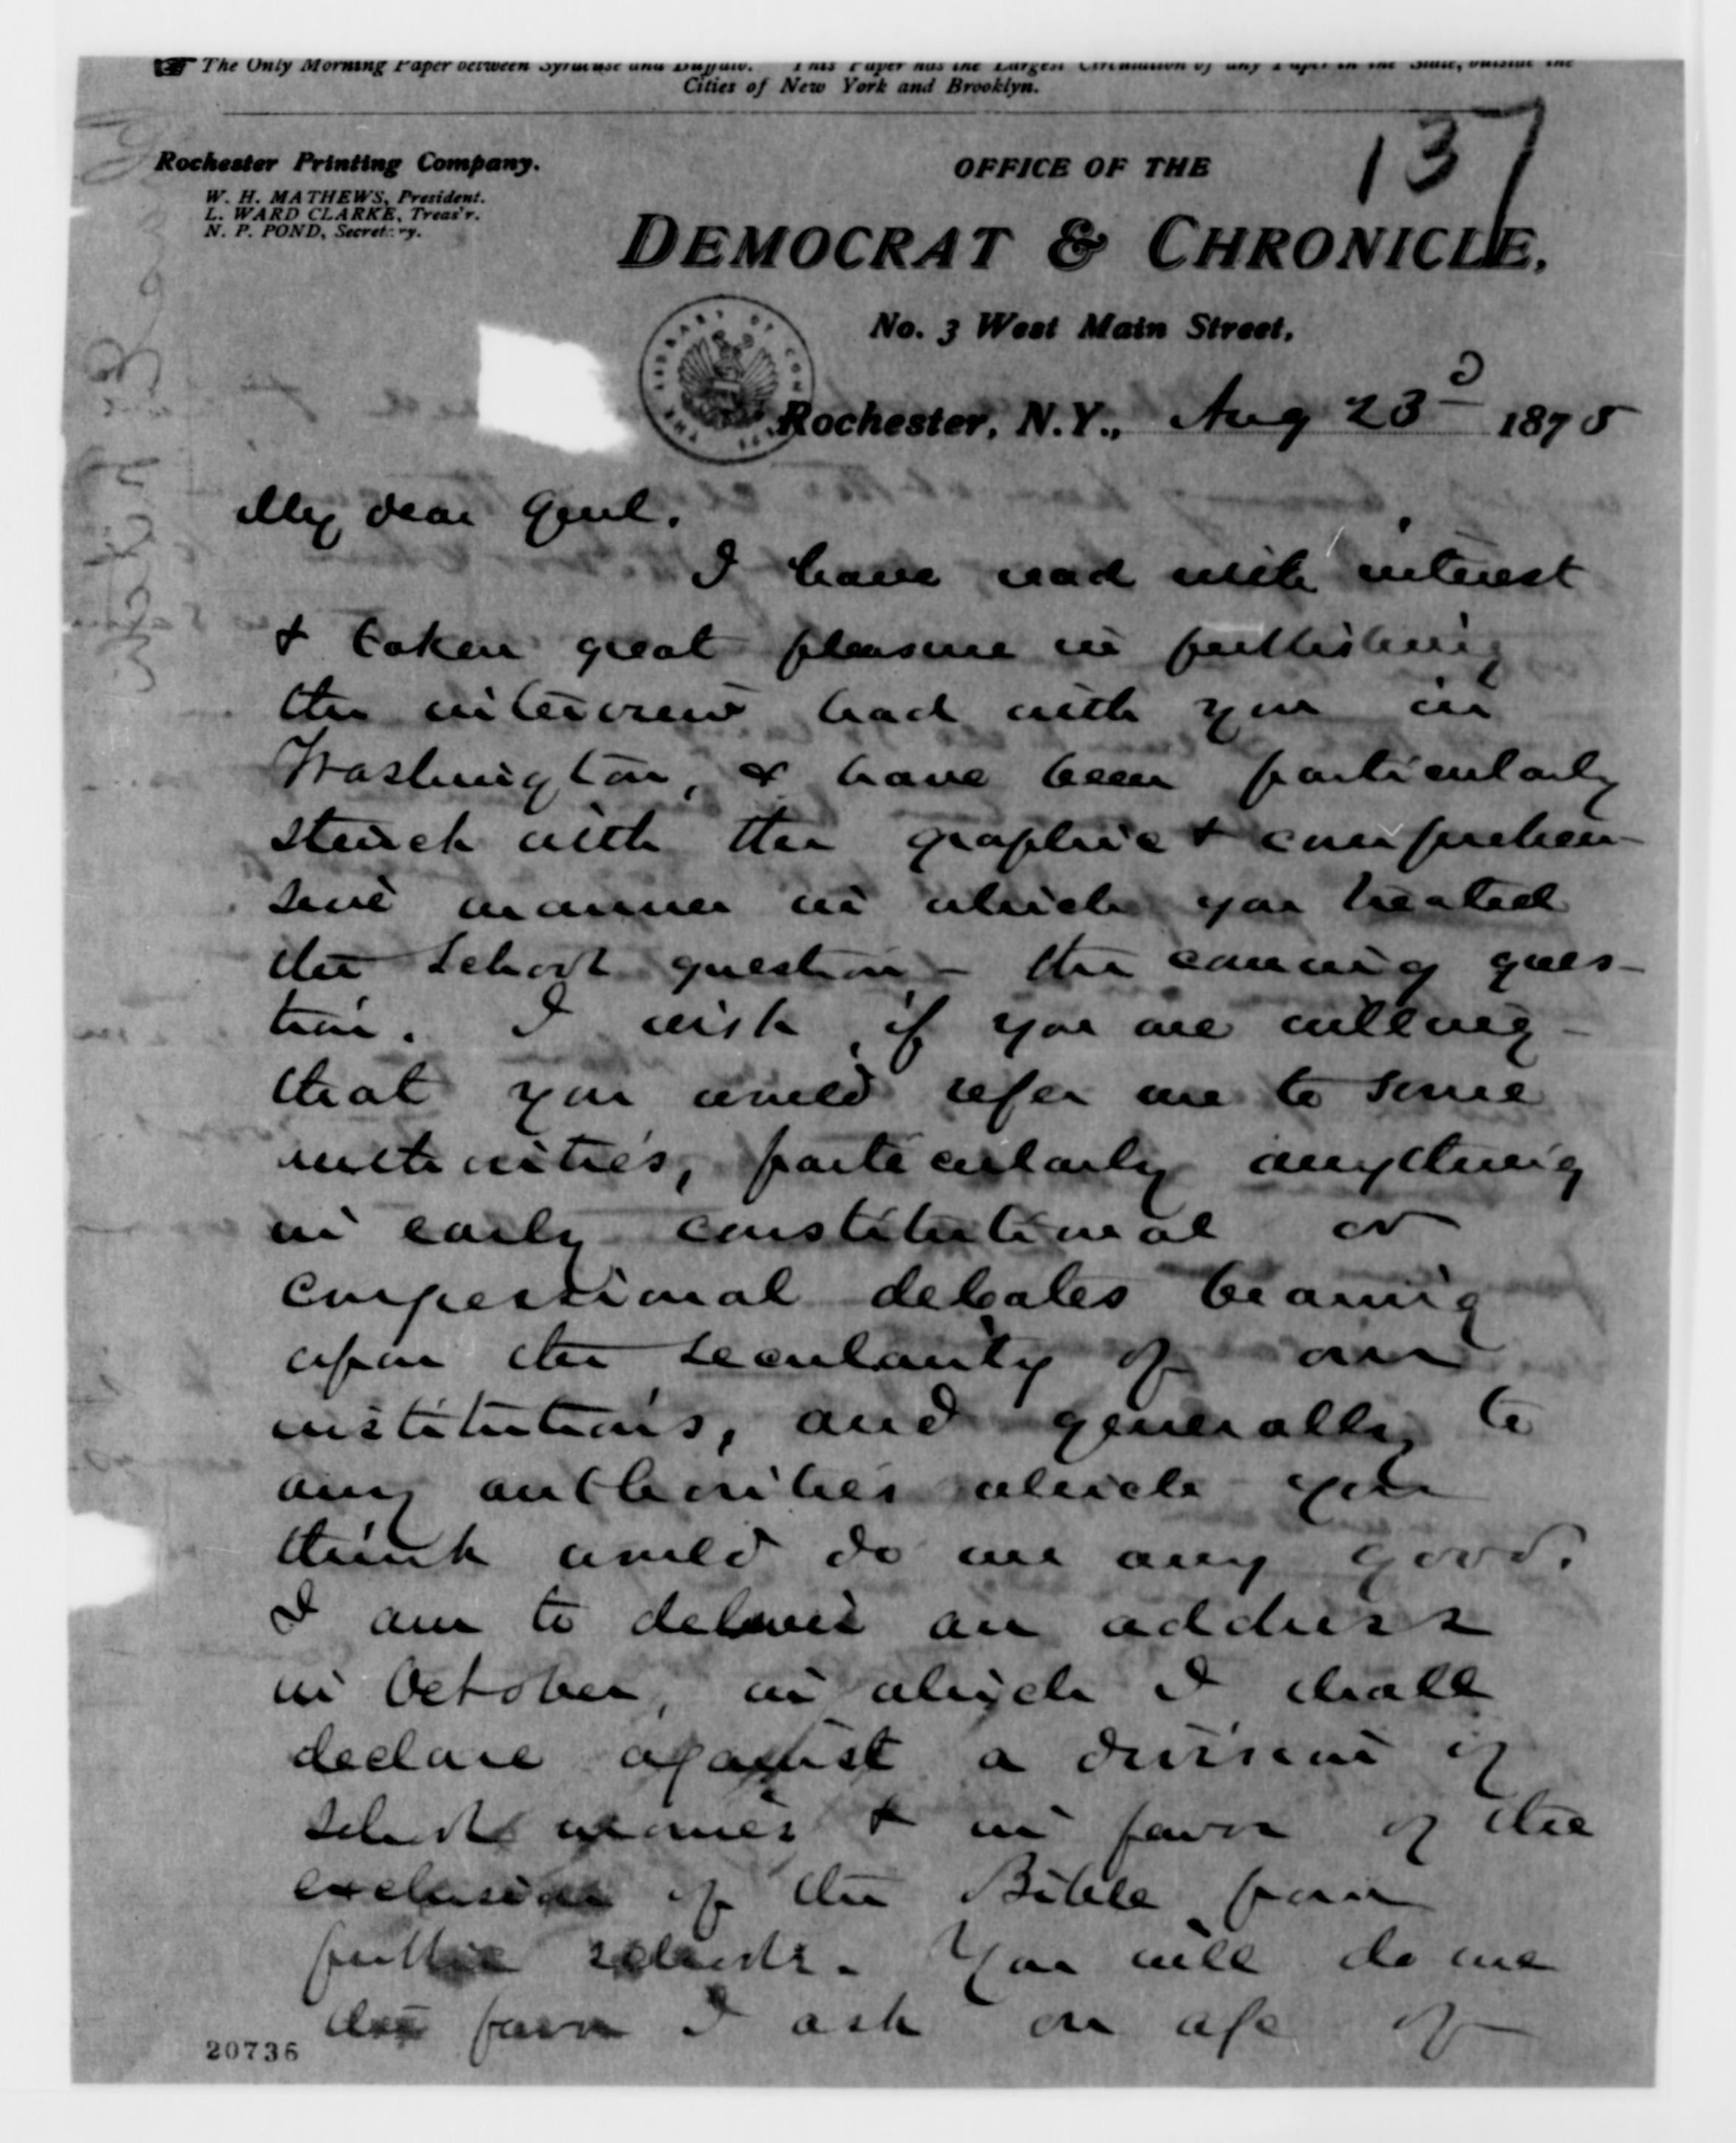 ☞ The Only Morning Paper between Syracuse and Buffalo. This Paper has the Largest Circulation of any Paper in the State, outside the
Cities of New York and Brooklyn.
137
Rochester Printing Company.
W. H. MATHEWS, President.
L. WARD CLARKE, Treas'r.
N. P. POND, Secretary.
OFFICE OF THE
DEMOCRAT & CHRONICLE,
No. 3 West Main Street,
THE LIBRARY OF CONGRESS
Rochester, N.Y., Aug 23d 1875
My dear Genl.
I have read with interest
& taken great pleasure in publishing
the interview had with you in
Washington, & have been particularly
struck with the graphic & comprehen-
sive manner in which you treated
the School question - the coming ques-
tion. I wish, if you are willing -
that you would refer me to some
authorities, particularly anything
in early constitutional or
congressional debates bearing
upon the secularity of our
institutions, and generally to
any authorities which you
think would do me any good.
I am to deliver an address
in October, in which I shall
declare against a division of
school monies & in favor of the
exclusion of the Bible from
public schools. You will do me
the favor I ask on
20736